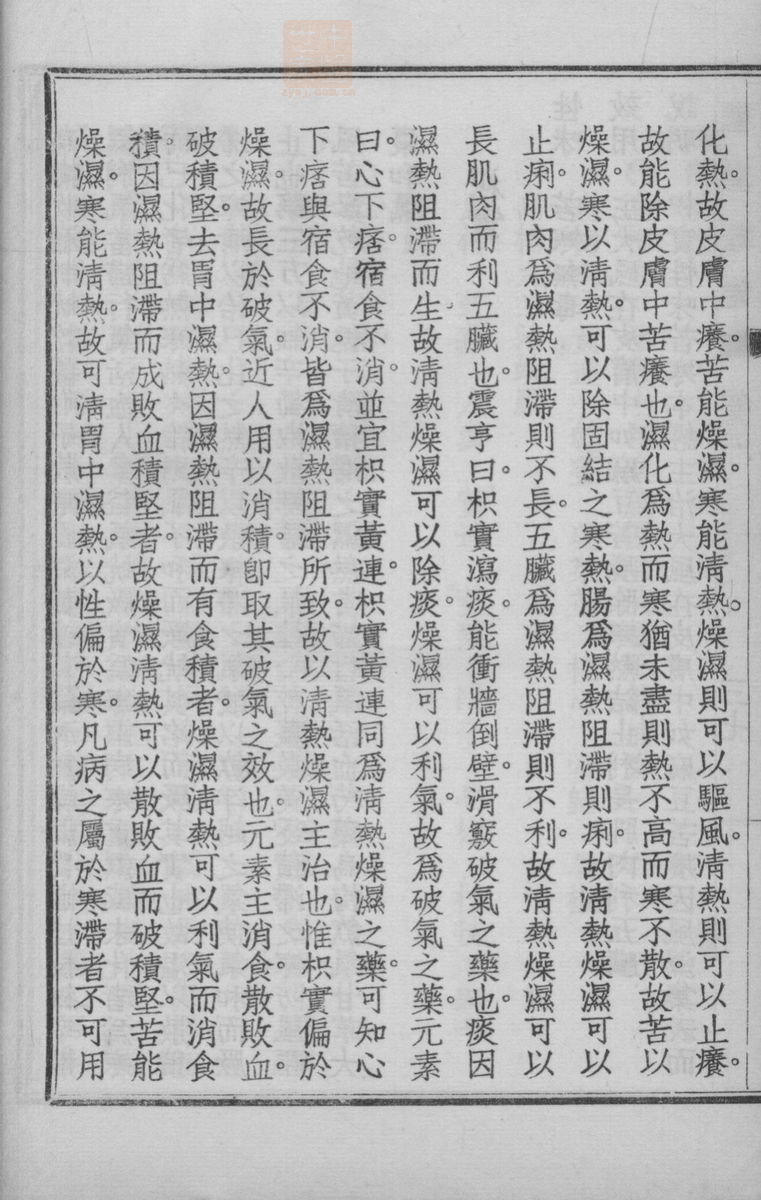 化熱。故皮膚中癢。苦能燥濕。寒能淸熱。燥濕則可以驅風。淸熱則可以止癢。
故能除皮膚中苦癢也。濕化爲熱而寒猶未盡則熱不高而寒不散。故苦以
燥濕。寒以淸熱。可以除固結之寒熱。腸爲濕熱阻滯則痢。故淸熱燥濕可以
止痢。肌肉爲濕熱阻滯則不長。五臟爲濕熱阻滯則不利。故淸熱燥濕可以
長肌肉而利五臟也。震亨曰。枳實瀉痰。能衝牆倒壁。滑竅破氣之藥也。痰因
濕熱阻滯而生。故淸熱燥濕可以除痰。燥濕可以利氣。故爲破氣之藥。元素
曰。心下痞。宿食不消。並宜枳實黃連。枳實黃連同爲淸熱燥濕之藥。可知心
下痞與宿食不消。皆爲濕熱阻滯所致。故以淸熱燥濕主治也。惟枳實偏於
燥濕。故長於破氣。近人用以消積。卽取其破氣之效也。元素主消食。散敗血。
破積堅。去胃中濕熱。因濕熱阻滯而有食積者。燥濕淸熱可以利氣而消食
積。因濕熱阻滯而成敗血積堅者。故燥濕淸熱可以散敗血而破積堅。苦能
燥濕。寒能淸熱。故可淸胃中濕熱。以性偏於寒。凡病之屬於寒滯者不可用